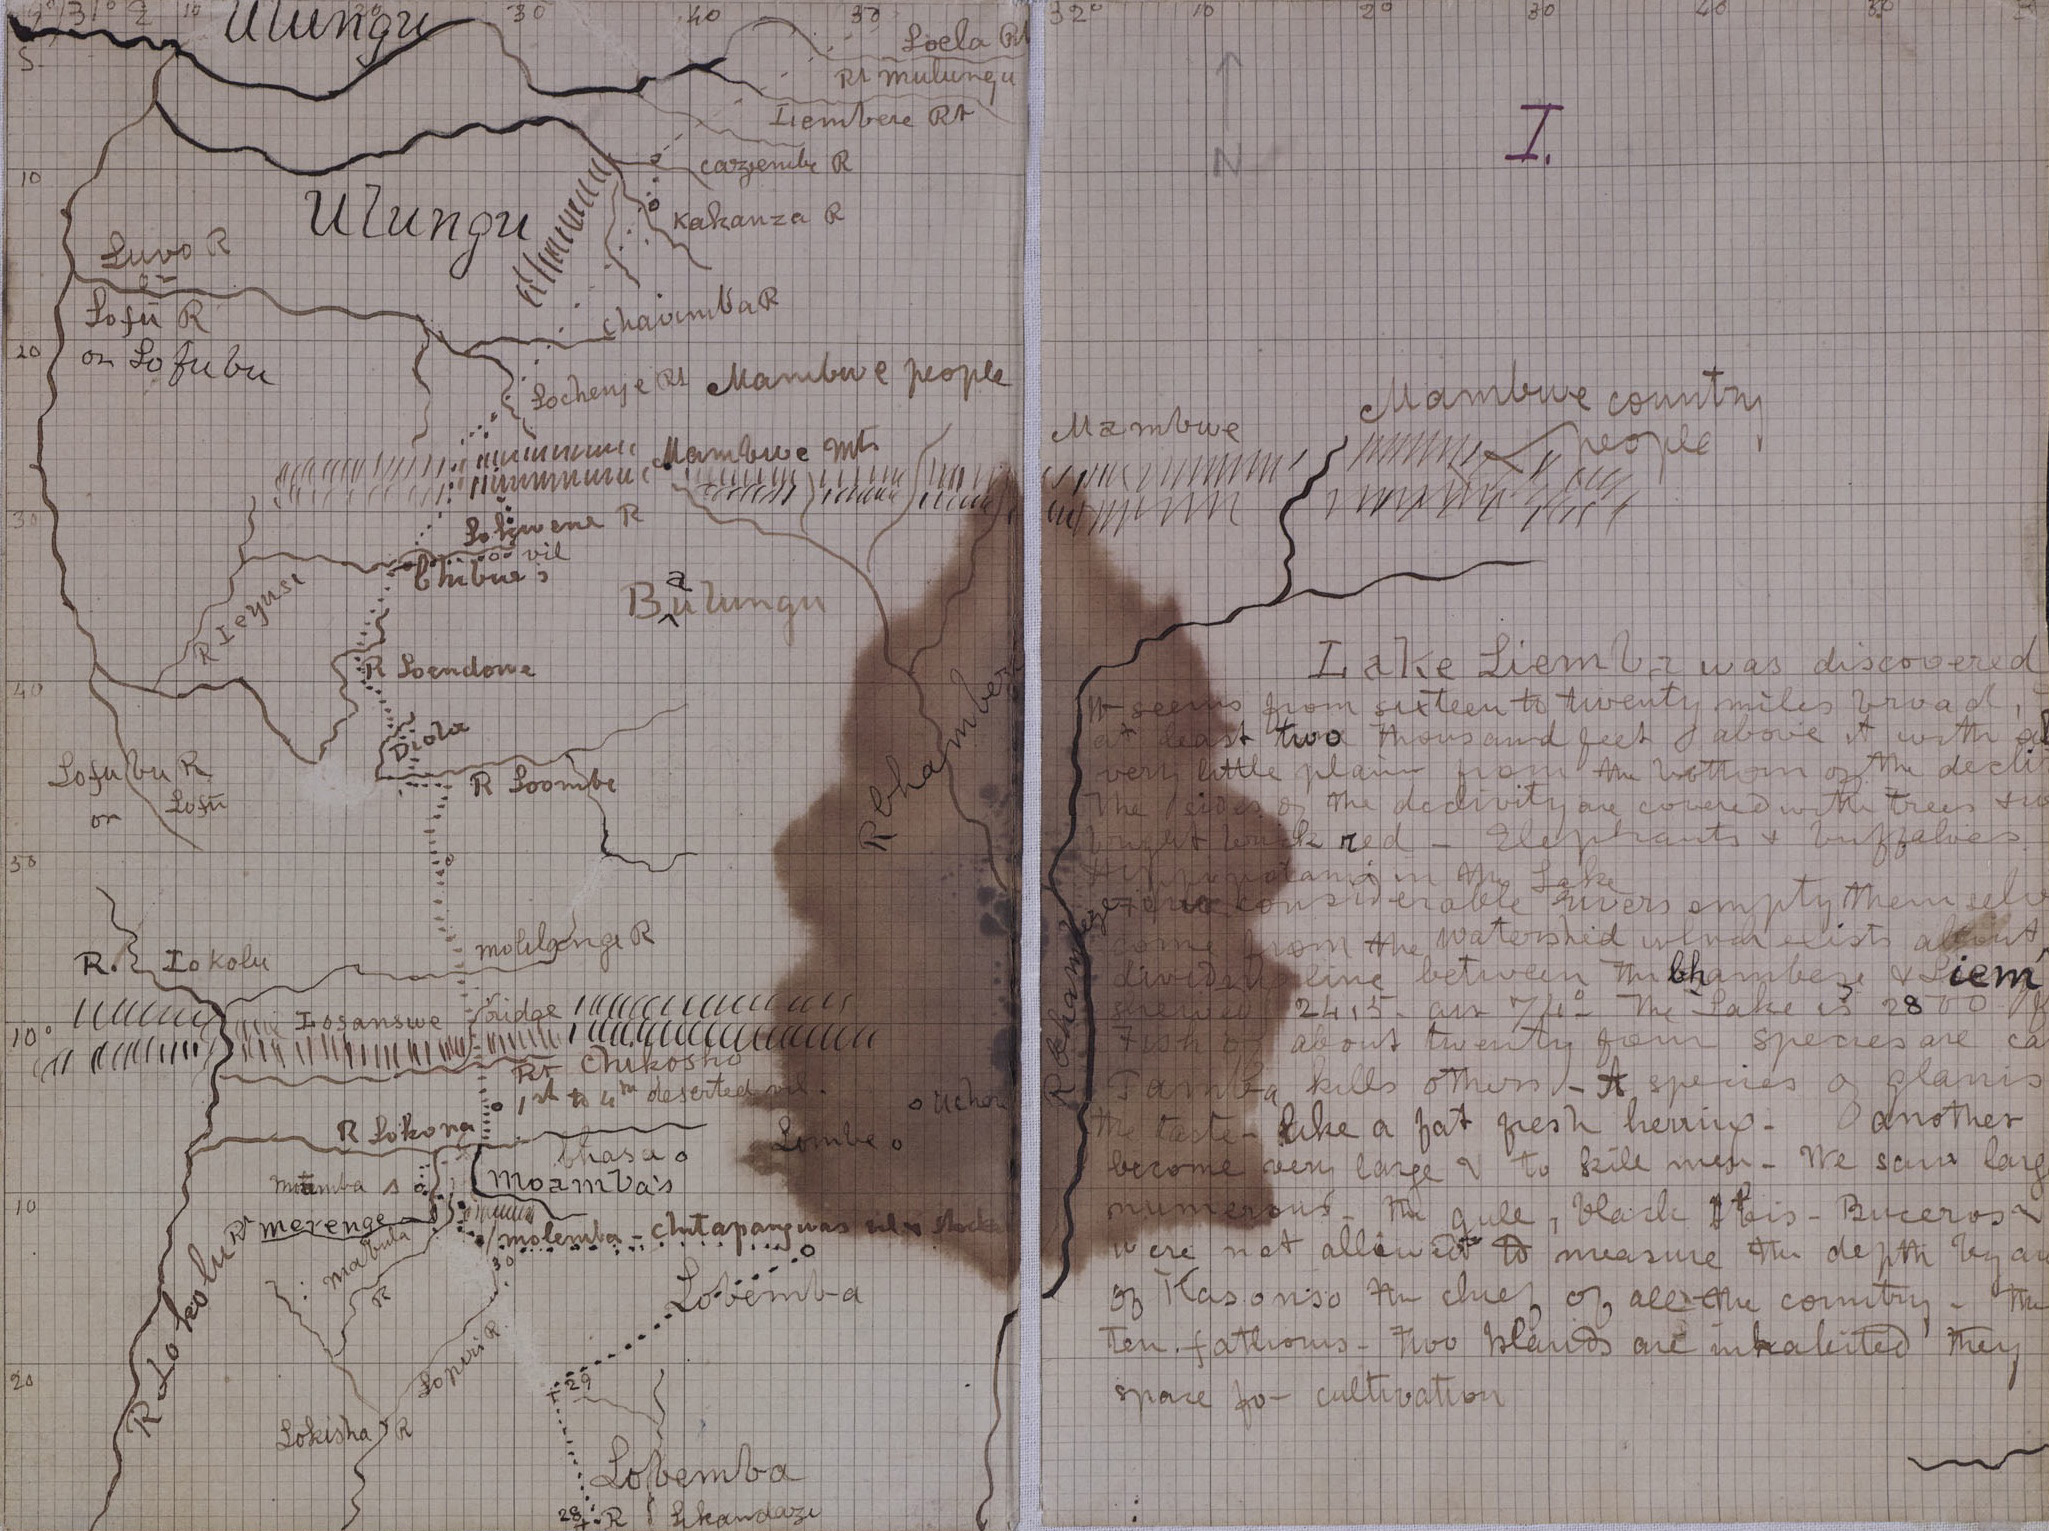 31° 2 10 20 30 40 50
Ulungu
Loela Rt
Rt mulungu
Liembere Rt
S
cazembe R
10
Ulungu
Kakanza R
Luvo R
or
Lofū R
chavimba R
20
or Lofubu
Lochenje Rt
Mambwe people
Mambwe Mts
30
Lokwena R
vil
Chibue's
Balungu
R Ieyusi
R Loendowe
40
Diola
R Chambeze
Lofubu R
or Lofū
R Loombe
50
R. Lokolu
mololenge R
Losanswe ridge
10°
Rt Chikosho
1st to 4th deserted vil.
o Uchere
R Lokona
Lombe o
Chasa o
Moamba s
Moamba's
10
Rt merenge
molemba - chitapanguas vil & stockade
Mabula R
30
Lobemba
R Lokolu
Lopiri R
20
29
Lokisha R
Lobemba
28 R Likandazi
32° 10 20 30 40 50
N
I.
Mambwe
Mambwe country
people
R Chambeze
Lake Liemba was discovered
It seems from sixteen to twenty miles broad,
at least two thousand feet above it with
very little plain from the bottom of the decli
The sides of the declivity are covered with trees &
bright brick red - Elephants & buffaloes
Hippopotami in the Lake
Four considerable rivers empty themselv
come from the watershed which exists about
dividing line between the Chambeze & Liem
shewed 2415 air 74° The Lake is 2800
Fish of about twenty four species are ca
Tamba kills others - A species of glanis
the taste - like a fat fresh herring - another
become very large & to kill men - We saw larg
numerous - The gull, black Ibis - Buceros
were not allowed to measure the depth by
of Kasonso the chief of all the country - the
Ten fathoms - Two Islands are inhabited they
space for cultivation